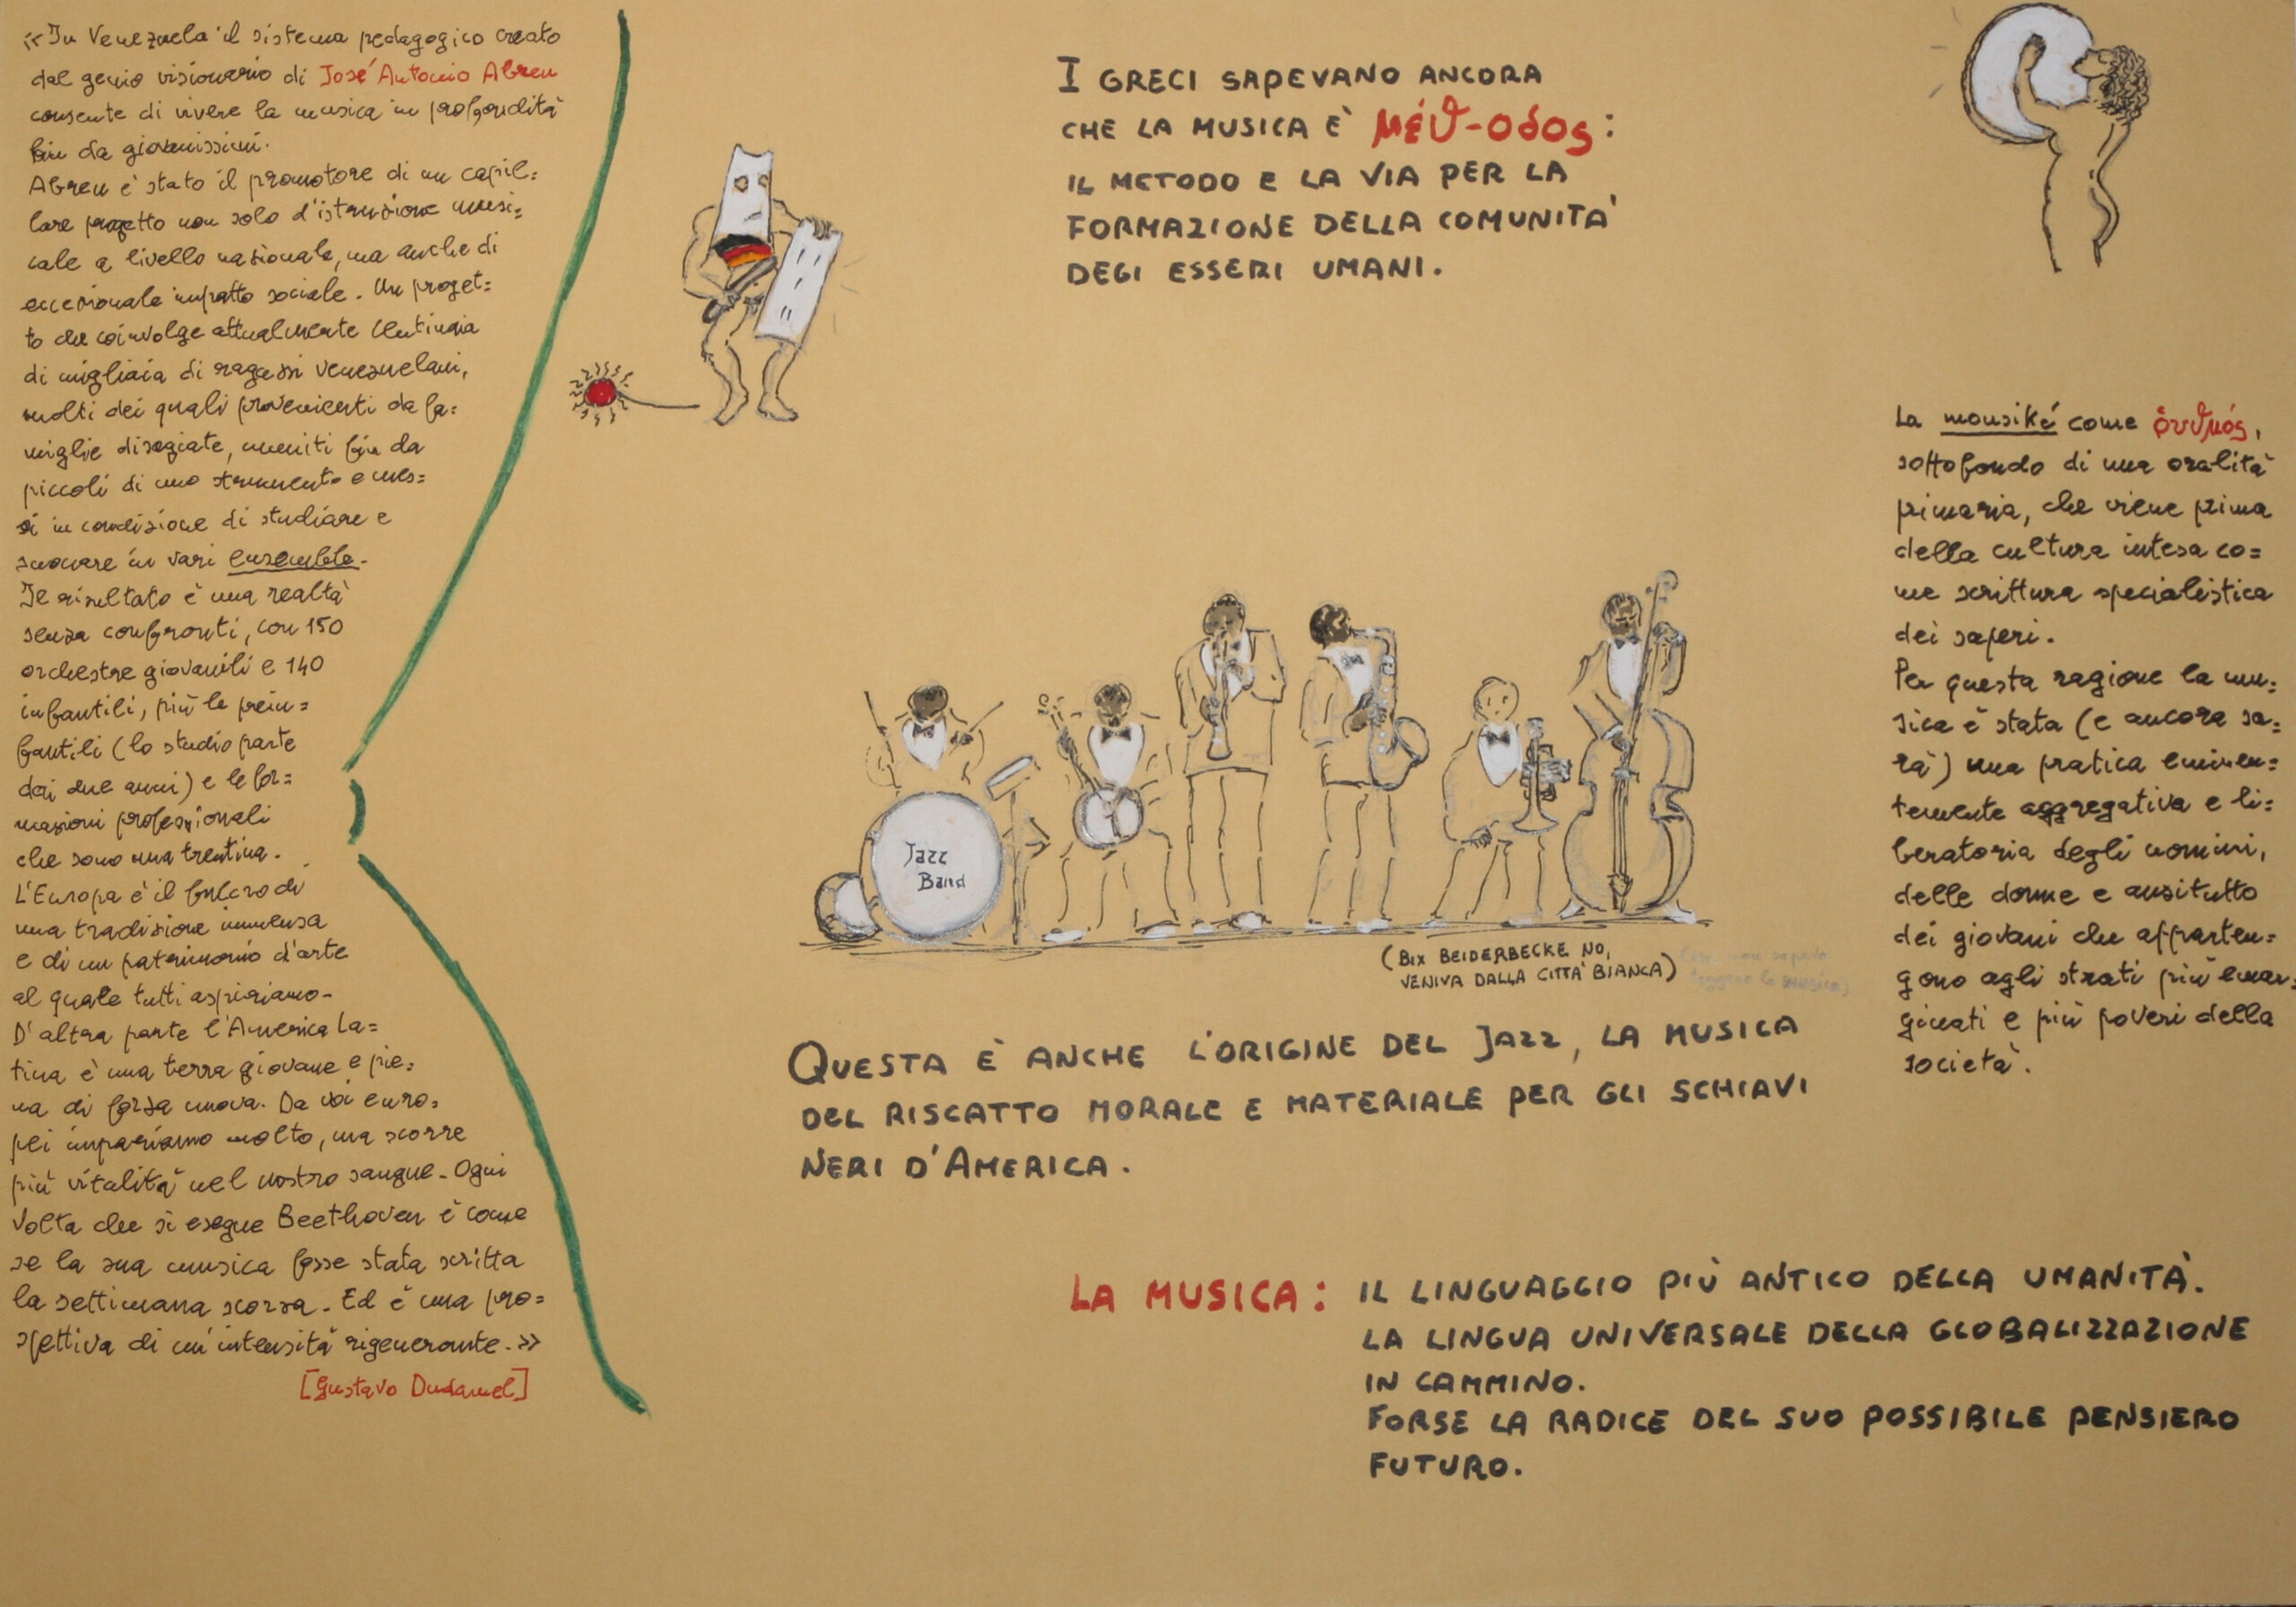 «In Venezuela il sistema pedagogico creato
dal genio visionario di José Antonio Abreu
consente di vivere la musica in profondità
fin da giovanissimi.
Abreu è stato il promotore di un capil=
lare progetto non solo d'istruzione musi=
cale a livello nazionale, ma anche di
eccezionale impatto sociale. Un proget=
to che coinvolge attualmente centinaia
di migliaia di ragazzi venezuelani,
molti dei quali provenienti da fa=
miglie disagiate, muniti fin da
piccoli di uno strumento e mes=
si in condizione di studiare e
suonare in vari ensemble.
Il risultato è una realtà
senza confronti, con 150
orchestre giovanili e 140
infantili, più le prein=
fantili (lo studio parte
dai due anni) e le for=
mazioni professionali
che sono una trentina.
L'Europa è il fulcro di
una tradizione immensa
e di un patrimonio d'arte
al quale tutti aspiriamo.
D'altra parte l'America La=
tina è una terra giovane e pie=
na di forza nuova. Da voi euro=
pei impariamo molto, ma scorre
più vitalità nel nostro sangue. Ogni
volta che si esegue Beethoven è come
se la sua musica fosse stata scritta
la settimana scorsa. Ed è una pro=
spettiva di un'intensità rigenerante.»
[Gustavo Dudamel]
I GRECI SAPEVANO ANCORA
CHE LA MUSICA È μέϑ-οδος:
IL METODO E LA VIA PER LA
FORMAZIONE DELLA COMUNITA'
DEGI ESSERI UMANI.
Jazz
Band
(BIX BEIDERBECKE NO,
VENIVA DALLA CITTA' BIANCA)
QUESTA È ANCHE L'ORIGINE DEL JAZZ, LA MUSICA
DEL RISCATTO MORALE E MATERIALE PER GLI SCHIAVI
NERI D'AMERICA.
LA MUSICA: IL LINGUAGGIO PIÙ ANTICO DELLA UMANITÀ.
LA LINGUA UNIVERSALE DELLA GLOBALIZZAZIONE
IN CAMMINO.
FORSE LA RADICE DEL SUO POSSIBILE PENSIERO
FUTURO.
La mousiké come
sottofondo di una oralità
primaria, che viene prima
della cultura intesa co=
me scrittura specialistica
dei saperi.
Per questa ragione la mu=
sica è stata (e ancora sa=
rà) una pratica eminen=
temente aggregativa e li=
beratoria degli uomini,
delle donne e anzitutto
dei giovani che apparten=
gono agli strati più emar=
ginati e più poveri della
società.